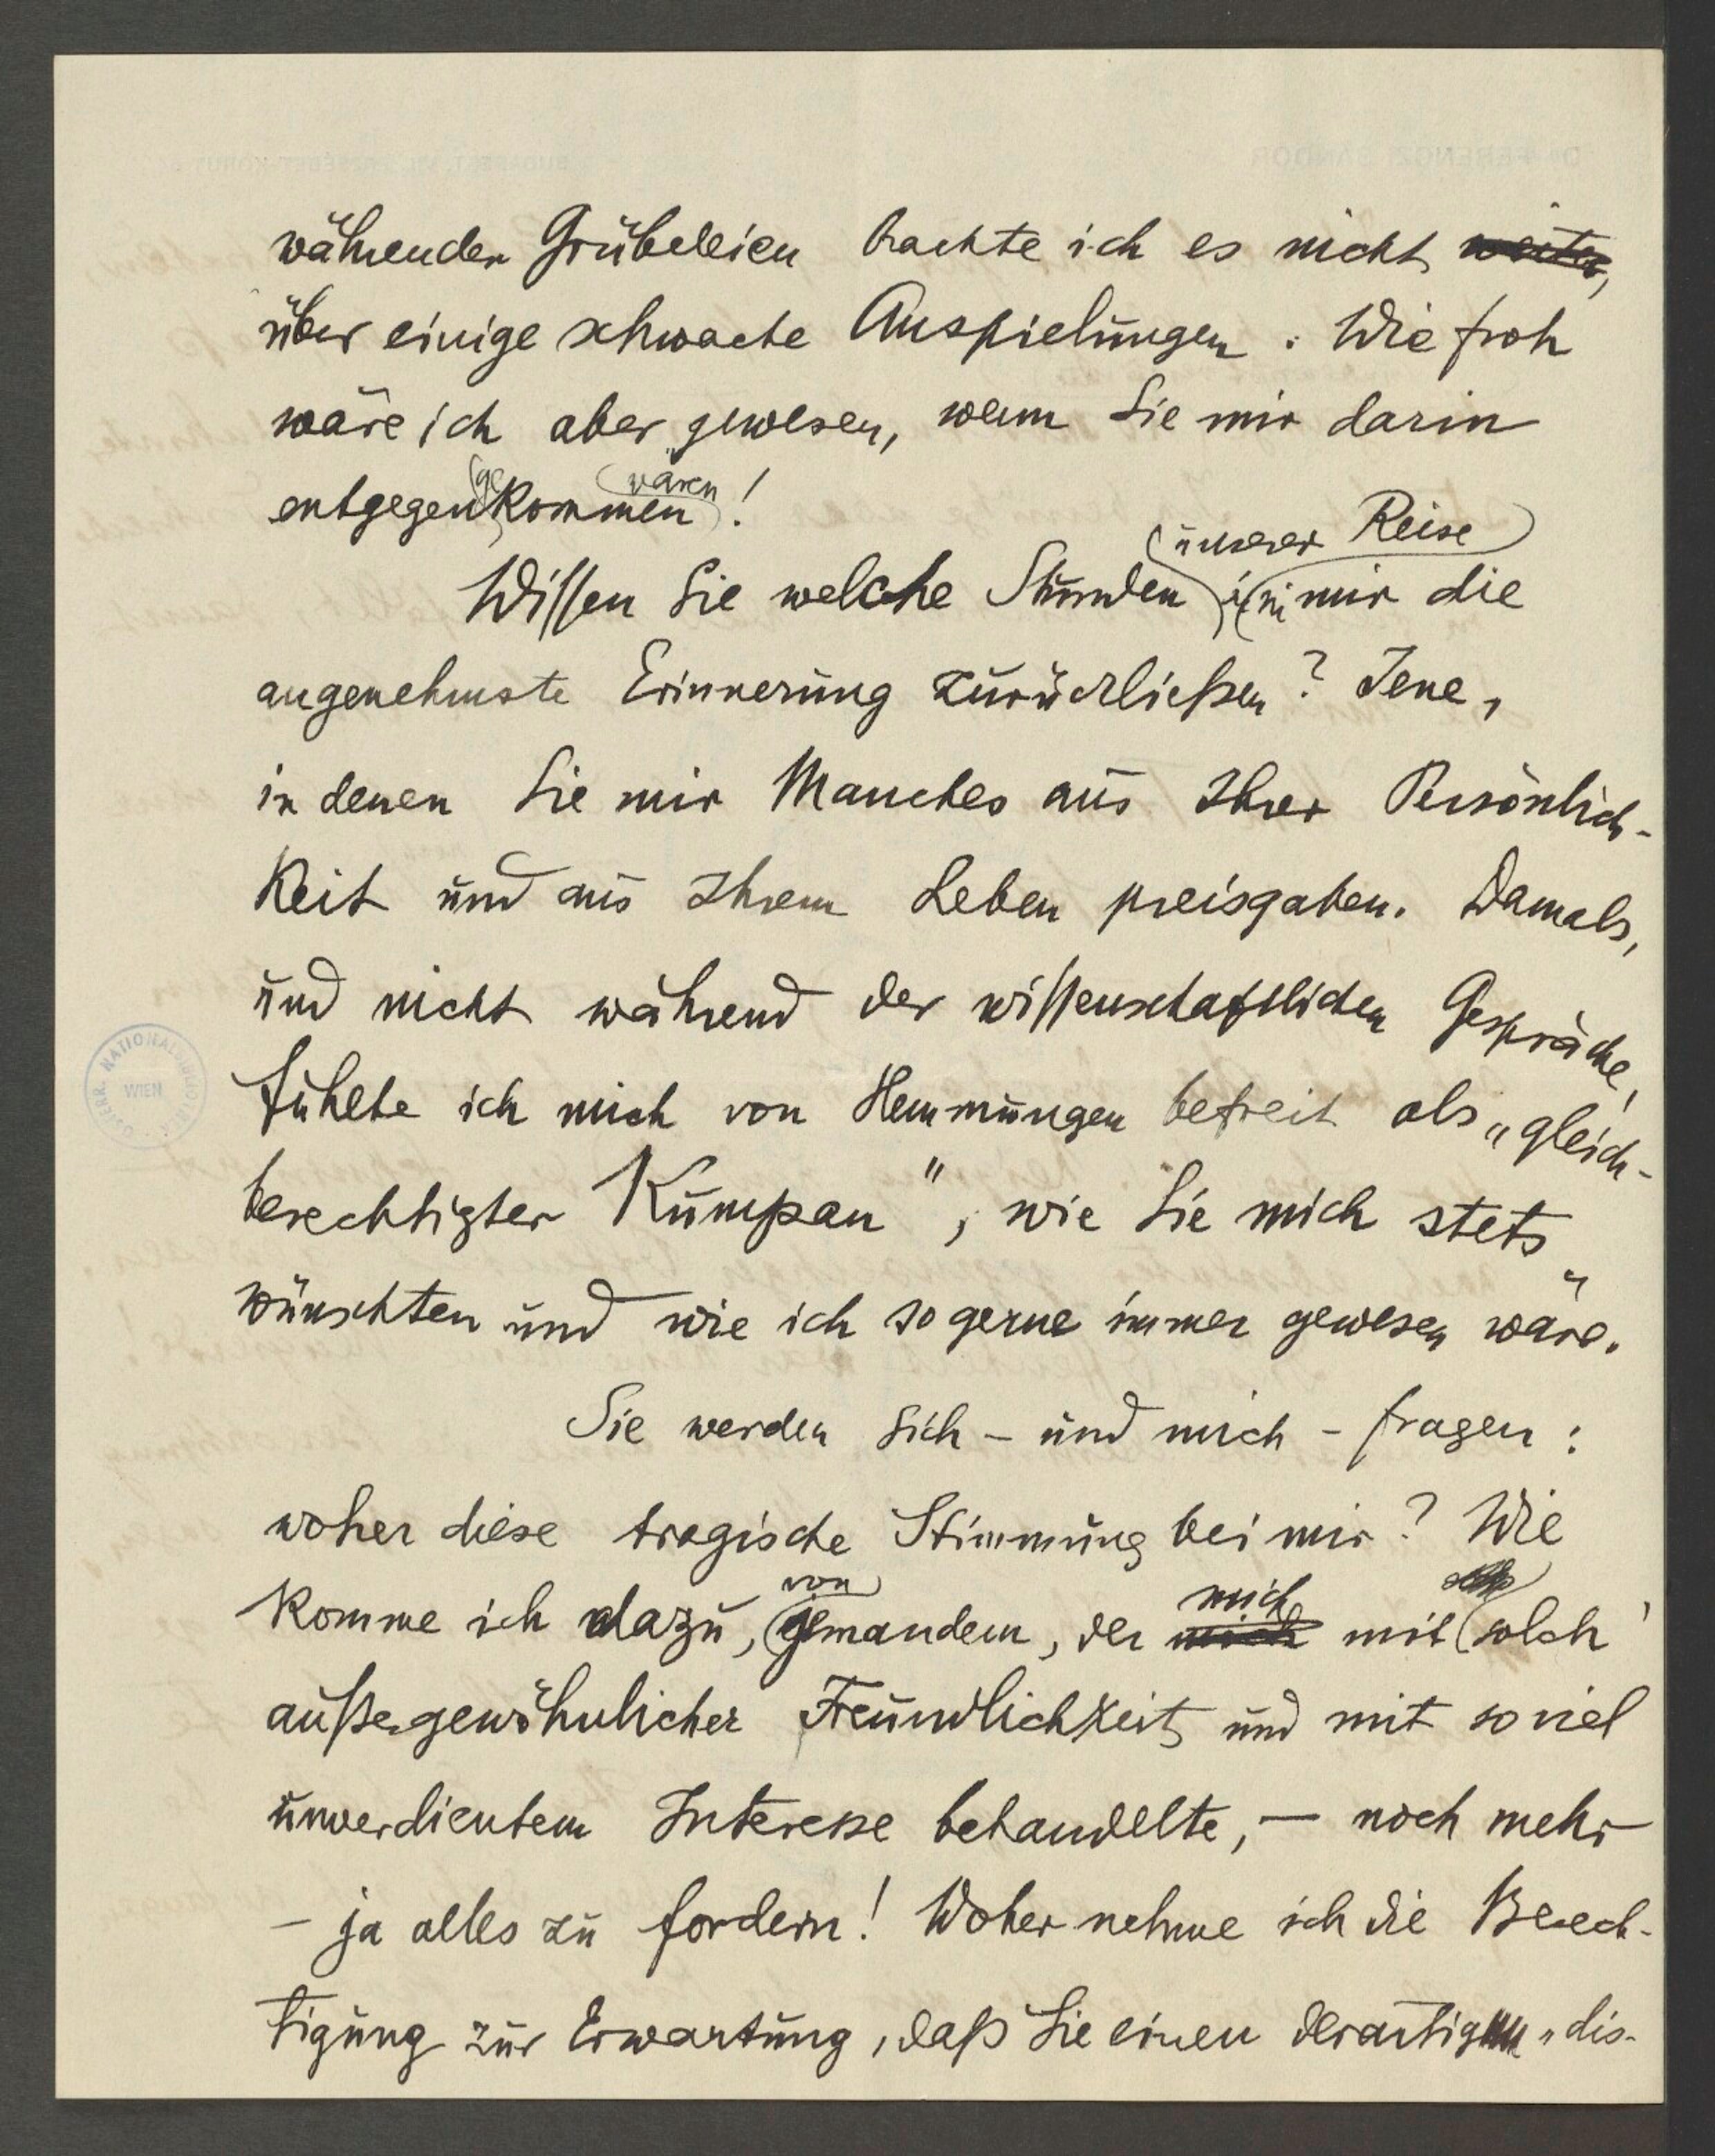 währender Grübeleien brachte ich es nicht weiter,
über einige schwache Anspielungen. Wie froh
wäre ich aber gewesen, wenn Sie mir darin
entgegengekommen wären!
Wissen Sie welche Stunden unserer Reise in mir die
angenehmste Erinnerung zurückließen? Jene,
in denen Sie mir Manches aus Ihrer Persönlich-
keit und aus Ihrem Leben preisgaben. Damals,
und nicht während der wissenschaftlichen Gespräche,
fühlte ich mich von Hemmungen befreit als „gleich-
berechtigter Kumpan", wie Sie mich stets
wünschten und wie ich so gerne immer gewesen wäre.
Sie werden sich – und mich – fragen:
woher diese tragische Stimmung bei mir? Wie
komme ich dazu, von jemandem, der mich mich mit solch'
außergewöhnlicher Freundlichkeit und mit soviel
unverdientem Interesse behandelte, – noch mehr
– ja alles zu fordern! Woher nehme ich die Berech-
tigung zur Erwartung, daß Sie einen derartigen „dis-
ÖSTERR. NATIONALBIBLIOTHEK
WIEN
Dr FERENCZI SÁNDOR